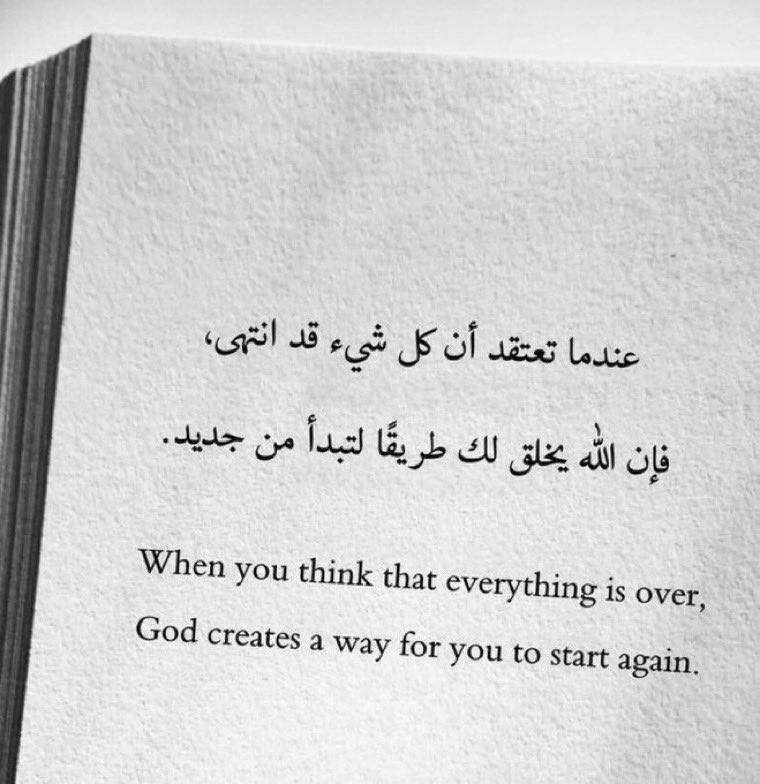 عندما تعتقد أن كل شيء قد انتهى،
فإن الله يخلق لك طريقًا لتبدأ من جديد.
When you think that everything is over,
God creates a way for you to start again.